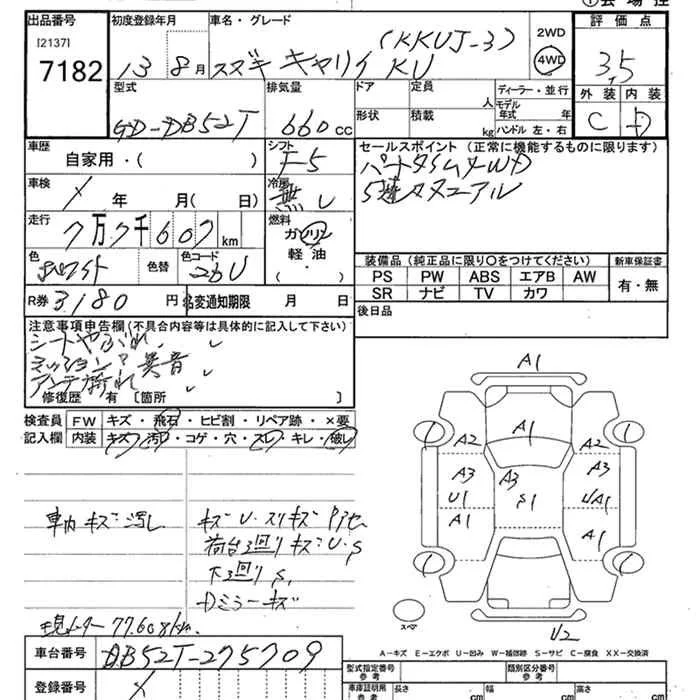 ①会 場 控
出品番号 初度登録年月 車名・グレード 2WD 評 価 点
[2137] (KKUJ-3) 4WD
7182 13 8月 スズキ キャリイ KU 3,5
型式 排気量 ドア 定員 人 ディーラー・並行 外 装 内 装
GD-DB52T 660cc 形状 積載 kg モデル年式 年 C D
ハンドル 左・右
車歴 自家用・( ) シフト F5 セールスポイント (正常に機能するものに限ります)
パートタイム4WD
車検 年 月( 日) 冷房 無し 5速マニュアル
走行 7万7千607km 燃料 ガソリン
軽油・( )
色 ホワイト 色替 色コード 26U
装備品(純正品に限り○をつけてください) 新車保証書
PS PW ABS エアB AW 有・無
SR ナビ TV カワ
R券 3180円 名変通知期限 月 日 後日品
注意事項申告欄(不具合内容等は具体的に記入して下さい)
シートやぶれ
ミッション 異音
アンテナ折れ
修復歴 有 〔箇所 〕
検査員 FW キズ・飛石・ヒビ割・リペア跡・×要
記入欄 内装 キズ・汚れ・コゲ・穴・スレ・キレ・破レ
A1
A1
A2 A2
A3 A3 A3
U1 S1 UA1
A1 A1
車内 キズ・汚し キズ U・スリキズ
荷台3回り キズ・U・S
下3回り S,
Dミラーキズ
現メーター 77.608km. スペア U2
A-キズ E-エクボ U-凹み W-補修跡 S-サビ C-腐食 XX-交換済
車台番号 DB52T-275709
型式指定番号 参考 類別区分番号 参考
登録番号
車庫証明用 参考 長さ cm 幅 cm 高さ cm